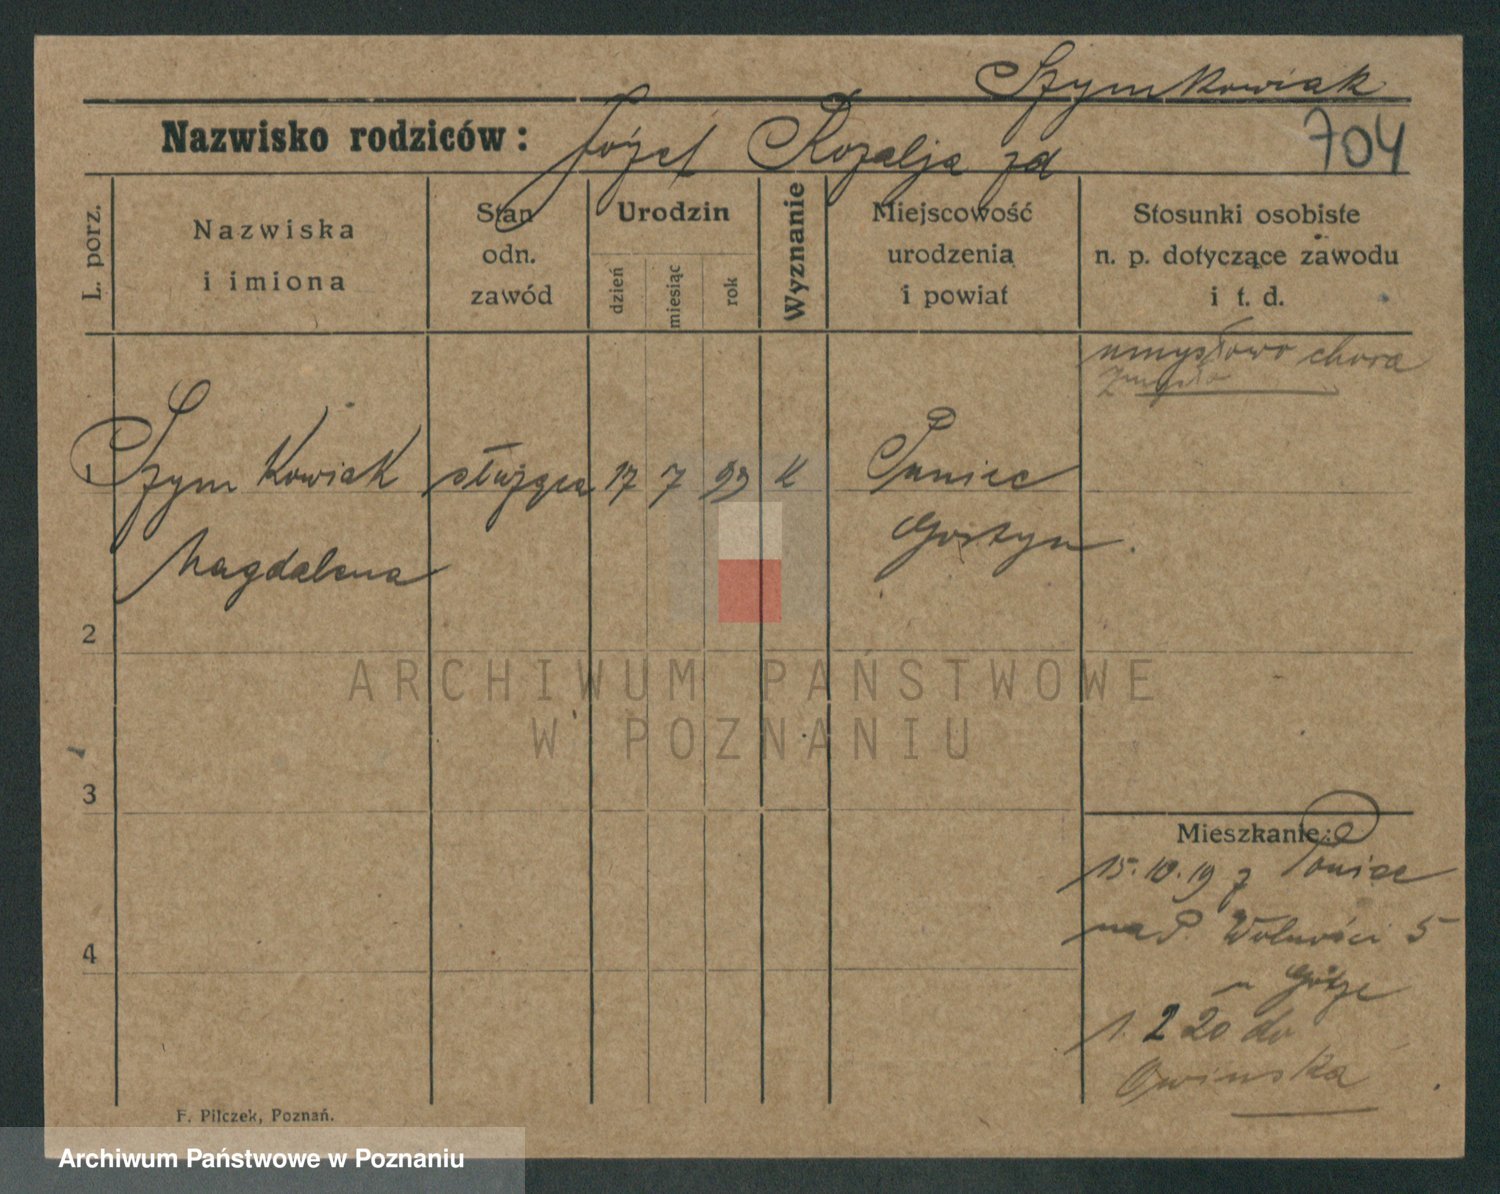 Szymkowiak
Nazwisko rodziców: Józef Rozalja zd
704
L. porz.
Nazwiska
i imiona
Stan
odn.
zawód
Urodzin
dzień
miesiąc
rok
Wyznanie
Miejscowość
urodzenia
i powiat
Stosunki osobiste
n. p. dotyczące zawodu
i t. d.
umysłowo chora
1 Szymkowiak służąca 17 7 99 k Puniec
Gostyn.
Magdalena
2
3
4
Mieszkanie:
15.10.19 z Poniec
na P. Wolności 5
u Götze
1. 2 20 do
Owinska
F. Pilczek, Poznań.
ARCHIWUM PAŃSTWOWE
W POZNANIU
Archiwum Państwowe w Poznaniu